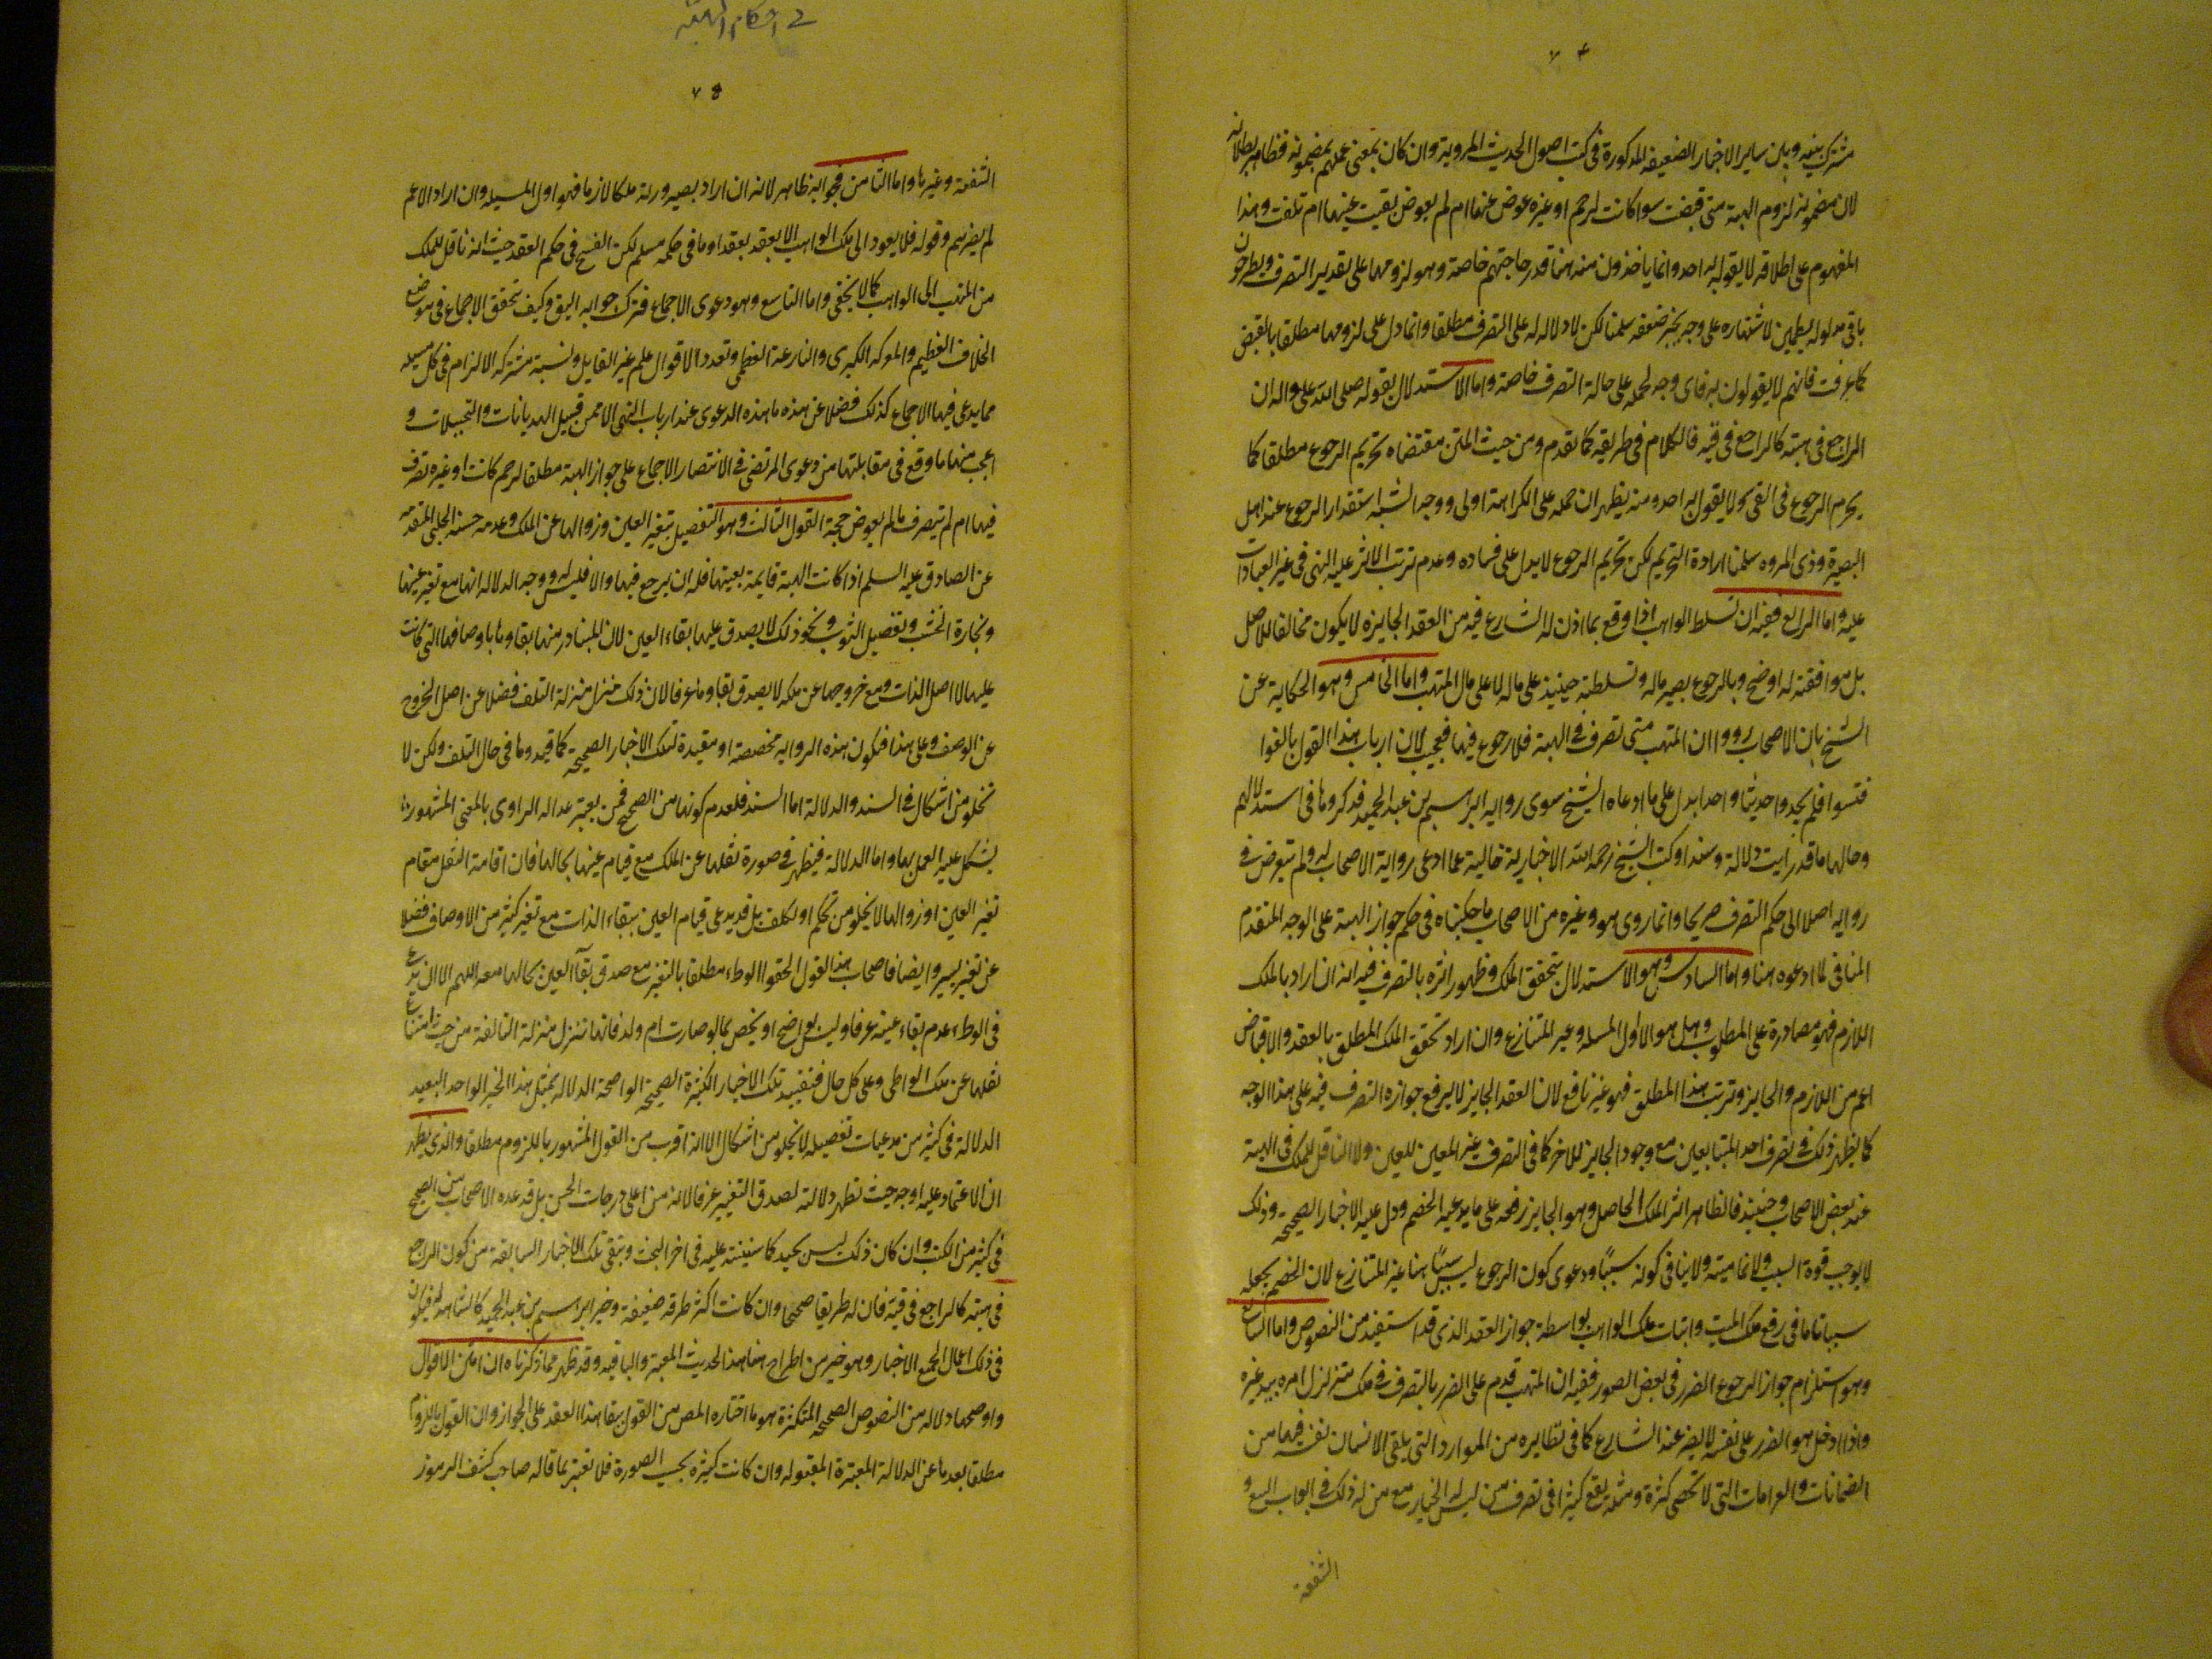 ٧٤
مشترك بينه وبين ساير الاخبار الضعيفة المذكورة في كتب اصول الحديث المروية وان كان بمعنى عملهم بمضمونه فظاهر بطلانه
لان مضمونه لزوم الهبة متى قبضت سوا كانت لرحم او غيره عوض عنها ام لم يعوض بقيت عينها ام تلفت وهذا
المفهوم على اطلاقه لا يقول به احد وانما ياخذون منه هنا قدر حاجتهم خاصة وهو لزومها على تقدير التصرف ويطرحون
باقي مدلوله لا شتهاره على وجه يجبر ضعفه سلمنا لكن لا دلاله له على التصرف مطلقا وانما دل على لزومها مطلقا بالقبض
كما عرفت فانهم لا يقولون به فاى وجه لحمله على حالة التصرف خاصة واما الاستدلال بقوله صلى الله عليه واله ان
الراجع في هبته كالراجع في قيئه فالكلام في طريقه كما تقدم ومن حيث المتن مقتضاه تحريم الرجوع مطلقا كما
يحرم الرجوع في القى ولا يقول به احد ومنه يظهر ان حمله على الكراهة اولى ووجه الشبه استقذار الرجوع عند اهل
البصيرة وذى المروه سلمنا ارادة التحريم لكن تحريم الرجوع لا يدل على فساده وعدم ترتب الاثر عليه النهى في غير العبادات
عليه واما الرابع ففيه ان تسلط الواهب اذا وقع بما اذن له الشارع فيه من العقد الجايزه لا يكون مخالفا للاصل
بل موافقته له اوضح وبالرجوع يصير ماله وتسلطه حينيذ على ماله لا على مال المتهب واما الخامس وهو الحكاية عن
الشيخ بان الاصحاب رووا ان المتهب متى تصرف في الهبة فلا رجوع فيها فعجيب لان ارباب هذا القول بالغوا
فتسوا فلم يجدوا حديثا واحدا يدل على ما ادعاه الشيخ سوى رواية ابراهيم بن عبد الحميد فذكروها في استدلالهم
وحالها ما قد رايت دلالة وسندا وكتب الشيخ رحمه الله الاخبارية خالية عما ادعى رواية الاصحاب له ولم يتعرض في
روايه اصلا الى حكم التصرف صريحا وانما روى هو وغيره من الاصحاب ما حكيناه في حكم جواز الهبة على الوجه المتقدم
المنافي لما ادعوه هنا واما السادس وهو الاستدلال بتحقق الملك وظهور اثره بالتصرف ففيه انه ان اراد بالملك
اللازم فهو مصادرة على المطلوب وهل هو الاول المسله وعين المتنازع وان اراد تحقق الملك المطلق بالعقد والاقباض
اعم من اللازم والجايز وترتب هذا المطلق فهو غير نافع لان العقد الجايز لا يرفع جوازه التصرف فيه على هذا الوجه
كما يظهر ذلك في تصرف احد المتبايعين مع وجود الجايز للاخر كما في التصرف غير المعين للعين ولا الناقل للملك في الهبة
عند بعض الاصحاب وحينيذ فالظاهر اثر الملك الحاصل وهو الجايز رفعه على ما يدعيه الخصم ودل عليه الاخبار الصحيحة وذلك
لا يوجب قوة السبب ولا تماميته ولا ينافي كونه سببًا ودعوى كون الرجوع ليس سببًا هنا عين المتنازع لان الخصم يجعله
سببا تاما في رفع ملك المتهب واثبات ملك الواهب بواسطة جواز العقد الذى قد استفيد من النصوص واما السابع
وهو استلزام جواز الرجوع الضرر في بعض الصور ففيه ان المتهب قدم على الضرر بالتصرف في ملك متزلزل امره بيد غيره
واذا ادخل هو الضرر على نفسه لا يضر عند الشارع كما في نظايره من الموارد التى يلقى الانسان نفسه فيها من
الضمانات والغرامات التى لا تحصى كثرة ومثله يقع كثيرا في تصرف من ليس له الخيار مع من له ذلك في ابواب البيع و
الشفعة
في احكام الهبة
٧٥
الشفعة وغيرها واما الثامن فجوابه ظاهر لانه ان اراد بصيرورته ملكا لازما فهو اول المسيله وان اراد الاعم
لم يضرهم وقوله فلا يعود الى ملك الواهب الا بعقد بعقد او ما في حكمه مسلم لكن الفسخ في حكم العقد حيث انه ناقل للملك
من المتهب الى الواهب كما لا يخفى واما التاسع وهو دعوى الاجماع فترك جوابه اليق وكيف تحقق الاجماع في موضع
الخلاف العظيم والمعركه الكبرى والمنازعة العظمى وتعدد الاقوال علم غير القايل ونسبة مشتركه الالزام في كل مسيله
مما يدعى فيها الاجماع كذلك فضلا عن هذه ما هذه الدعوى عند ارباب النهى الا من قبيل الهديانات والتجيلات و
اعجب منها ما وقع في مقابلتها من دعوى المرتضى في الانتصار الاجماع على جواز الهبة مطلقا لرحم كانت او غيره تصرف
فيها ام لم يتصرف ما لم يعوض حجة القول الثالث وهو التفصيل بتغير العين وزوالها عن الملك وعدمه حسنه الحلبى المتقدمه
عن الصادق عليه السلم اذا كانت الهبة قايمة بعينها فله ان يرجع فيها والا فليس له ووجه الدلاله انها مع تغير عينها
ونجارة الخشب وتفصيل الثوب ونحو ذلك لا يصدق عليها بقاء العين لان المتبادر منها بقاوها باوصافها التى كانت
عليها لا اصل الذات ومع خروجها عن ملكه لا يصدق بقاوها عرفا لان ذلك منزل منزلة التلف فضلا عن اصل الخروج
عن الوصف وعلى هذا فيكون هذه الروايه مخصصة او مقيدة لتلك الاخبار الصحيحة كما قيدوها في حال التلف ولكن لا
تخلو من اشكال في السند والدلالة اما السند فلعدم كونها من الصحيح فمن يعتبر عداله الراوى بالمعنى المشهور
يشكل عليه العمل بها واما الدلالة فيظهر في صورة نقلها عن الملك مع قيام عينها بحالها فان اقامة النقل مقام
تغير العين او زوالها لا يخلو من تحكم او تكلف بل قد يدعى قيام العين ببقاء الذات مع تغير كثير من الاوصاف فضلا
عن تغير يسير وايضا فاصحاب هذا القول الحقوا الوطء مطلقا بالتغير مع صدق بقآ العين بحالها معه اللهم الا ان يدعى
في الوطء عدم بقاء عينه عرفا وليس بواضح او يخص بما لو صارت ام ولد فانها تنزل منزلة التالفة من حيث امتناع
نقلها عن ملك الواطى وعلى كل حال فتقييد تلك الاخبار الكثيرة الصحيحة الواضحة الدلاله بمثل هذا الخبر الواحد البعيد
الدلالة في كثير من مدعيات تفصيله لا يخلو من اشكال الا انه اقرب من القول المشهور باللزوم مطلقا والذى يظهر
ان الاعتماد عليه اوجه حيث تظهر دلالته لصدق التغيير عرفا لانه من اعلى درجات الحسن بل قد عده الاصحاب من الصحيح
في كثير من الكتب وان كان ذلك ليس بجيد كما سنينه عليه في اخر البحث وتبقى تلك الاخبار السابقة من كون الراجع
في هبته كالراجع في قيئه فان له طريقا صحيحا وان كانت اكثر طرقه ضعيفة وخبر ابراهيم بن عبد الحميد كالشاهد له فيكون
في ذلك اعمال لجميع الاخبار وهو خير من اطراح هذا الحديث المعتبر والباقيه وقد ظهر مما ذكرناه ان امتن الاقوال
واوضحها دلاله من النصوص الصحيحه المتكثرة هو ما اختاره المص من القول ببقا هذا العقد على الجواز وان القول باللزوم
مطلقا بعدها عن الدلالة المعتبرة المقبوله وان كانت كثيرة بحسب الصورة فلا تعتبر بما قاله صاحب كشف الرموز